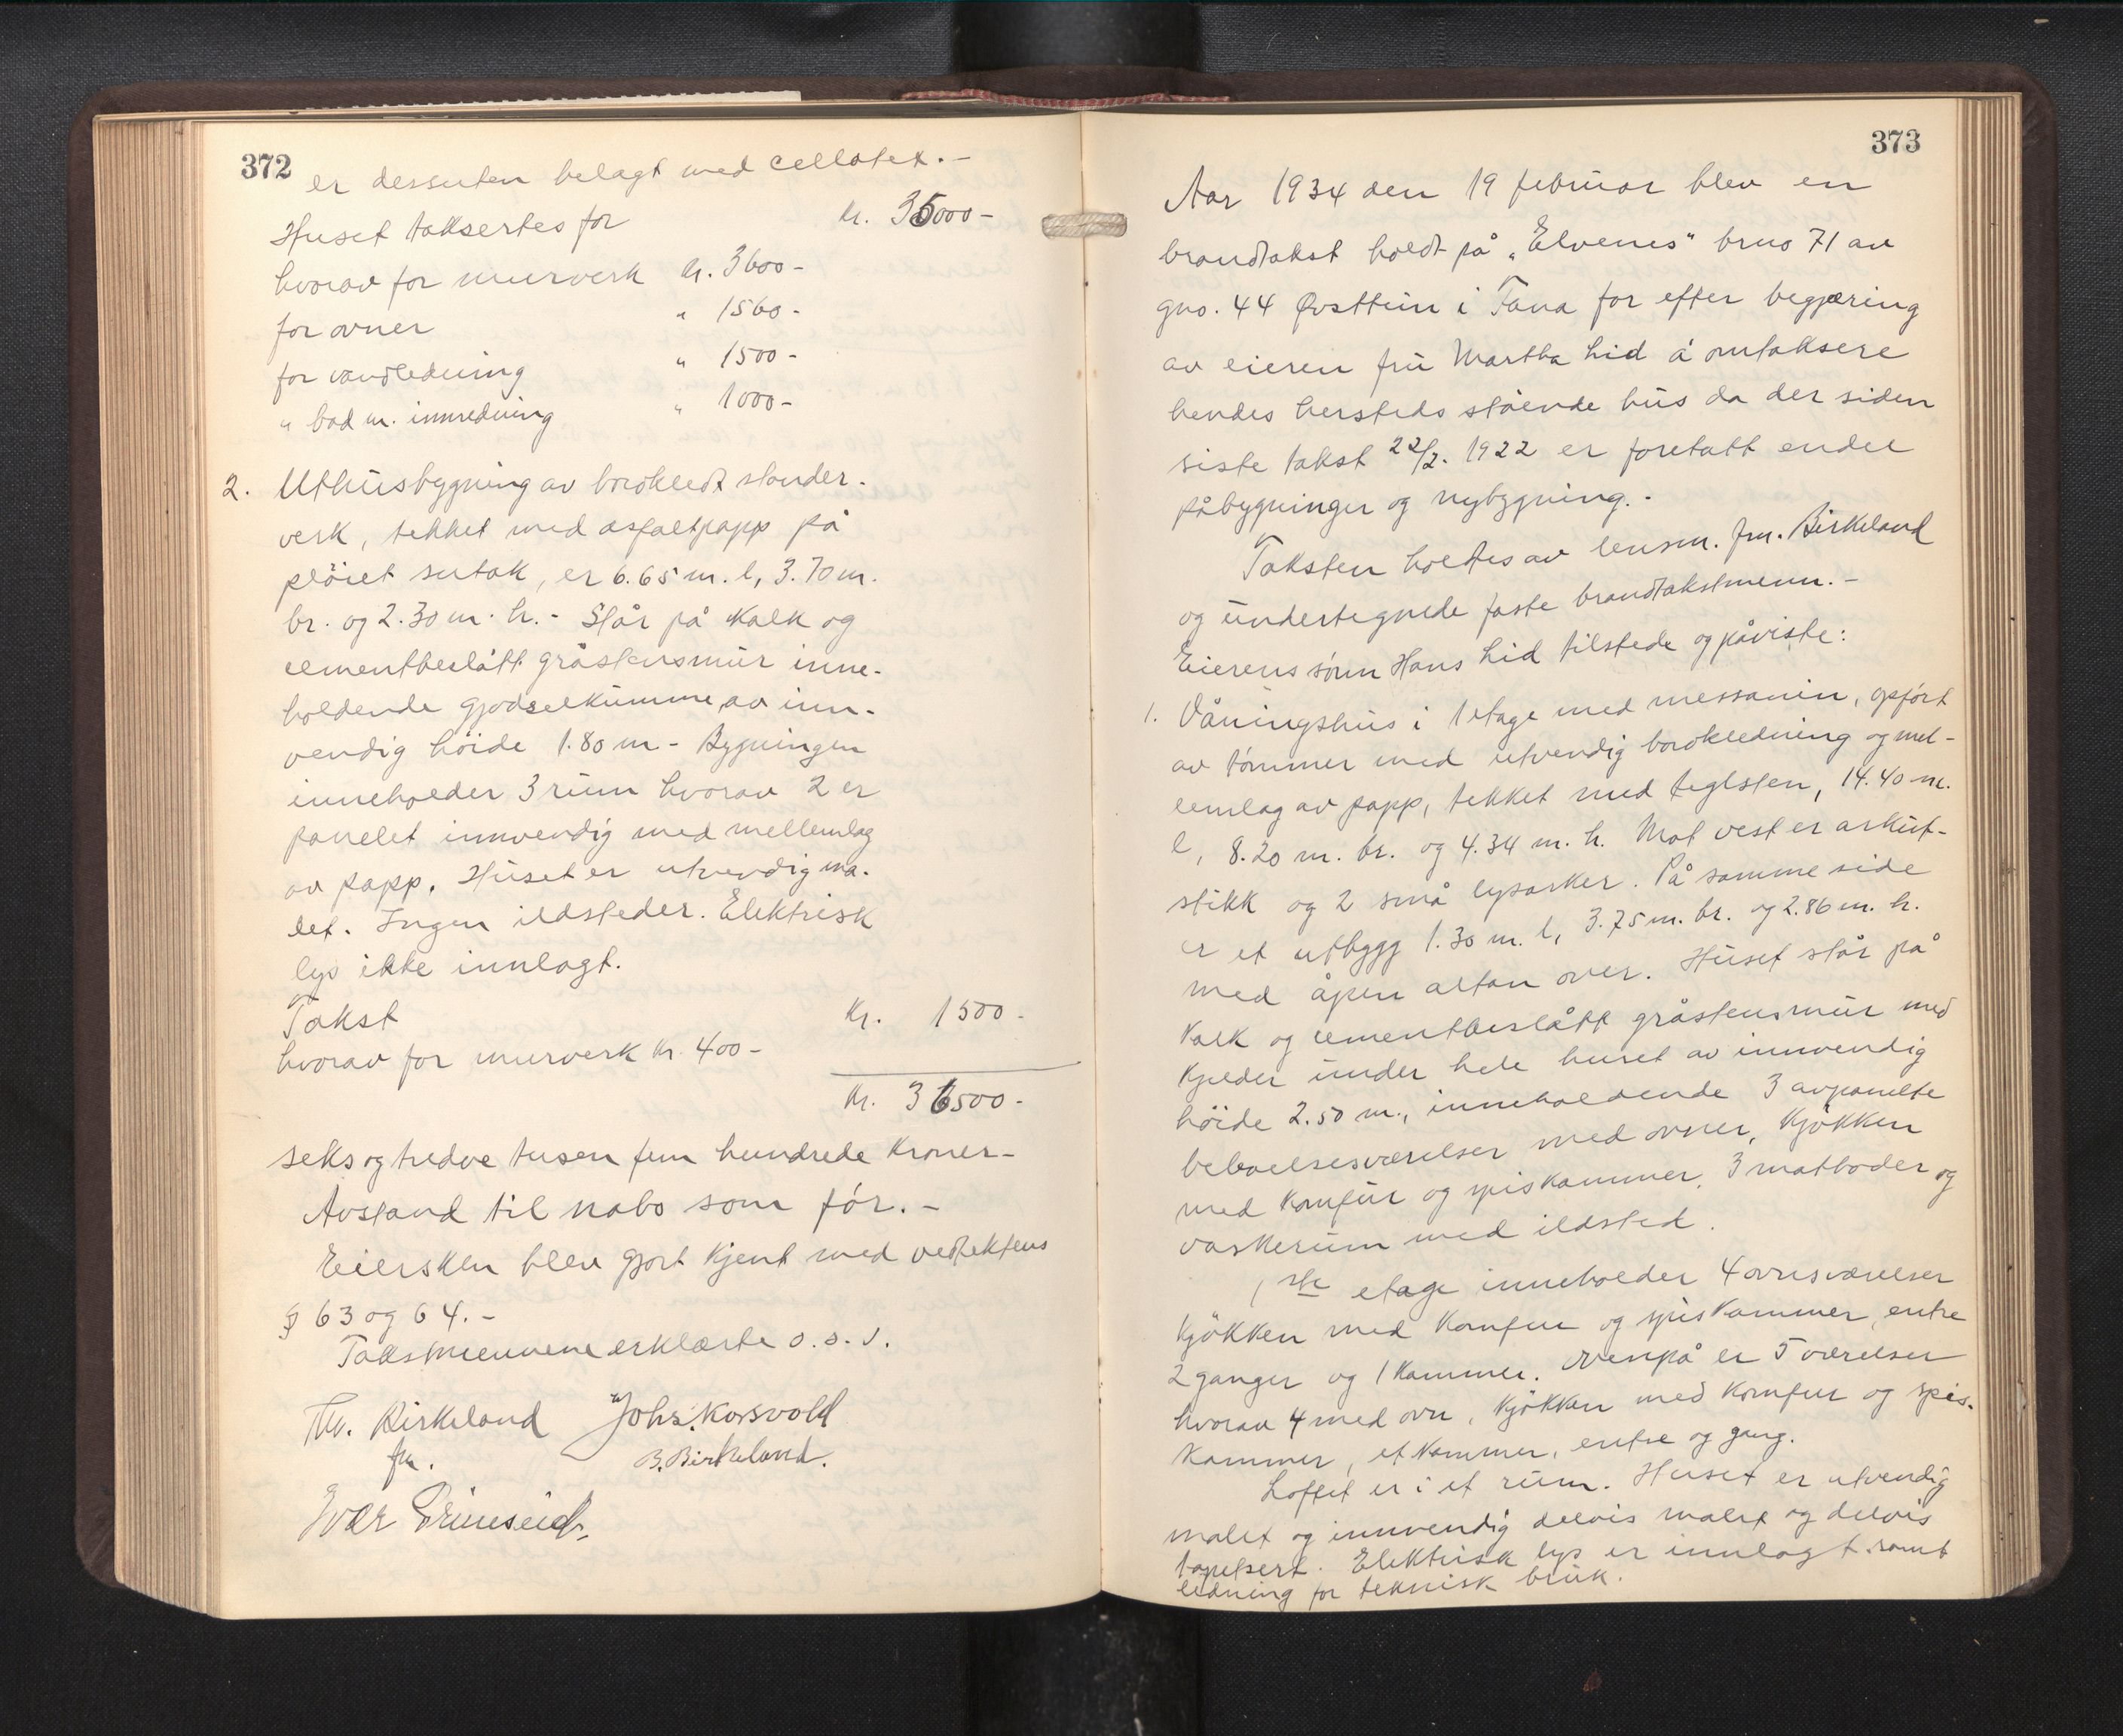 372
er dessuten belagt med cellotex.-
Huset taksertes for Kr. 35000-
hvorav for murverk Kr. 3600-
for ovner " 1560-
for vandledning " 1500-
" bad m. innredning " 1000-
2. Uthusbygning av bordkledt stender-
verk, tekket med asfaltpapp på
pløiet sutak, er 6.65 m. l, 3.70 m.
br. og 2.30 m. h.- Står på kalk og
cementbeslått gråstensmur inne-
holdende gjødselkumme av inn-
vendig høide 1.80 m - Bygningen
inneholder 3 rum hvorav 2 er
panelet innvendig med mellemlag
av papp. Huset er utvendig ma-
let. Ingen ildsteder. Elektrisk
lys ikke innlagt.
Takst Kr. 1500-
hvorav for murverk Kr. 400-
Kr. 36500-
seks og tredve tusen fem hundrede Kroner-
Avstand til nabo som før.-
Eiersken blev gjort kjent med vedtektens
§ 63 og 64.-
Takstmennene erklærte o.s.v.
Th. Birkeland Johs. Korsvold
fm. B. Birkeland.
Ivar Grimseid.
373
Aar 1934 den 19 februar blev en
brandtakst holdt på "Elvenes" bruo 71 av
gno. 44 Øvsttun i Fana for efter begjæring
av eieren fru Martha Lid å omtaksere
hendes hersteds stående hus da der siden
siste takst 22/2. 1922 er foretatt endel
påbygninger og nybygning.-
Taksten holdtes av lensm. fm. Birkeland
og undertegnede faste brandtakstmenn.-
Eierens sønn Hans Lid tilstede og påviste:
1. Våningshus i 1 etage med messanin, opført
av tømmer med utvendig bordkledning og mel-
lemlag av papp, tekket med teglsten, 14.40 m.
l, 8.20 m. br. og 4.34 m. h. Mot vest er arkut-
stikk og 2 små lysarker. På samme side
er et utbygg 1.30 m. l, 3.75 m. br. og 2.86 m. h.
med åpen altan over. Huset står på
kalk og cementbeslått gråstensmur med
kjelder under hele huset av innvendig
høide 2.50 m., inneholdende 3 avpanelte
beboelsesværelser med ovner, kjøkken
med komfur og spiskammer, 3 matboder og
vaskerum med ildsted.
1ste etage inneholder 4 ovnsværelser
kjøkken med komfur og spiskammer, entre
2 ganger og 1 kammer. Ovenpå er 5 værelser
hvorav 4 med ovn, kjøkken med komfur og spis-
kammer, et kammer, entre og gang.
Loftet er i et rum. Huset er utvendig
malt og innvendig delvis malt og delvis
tapetsert. Elektrisk lys er innlagt samt
ledning for teknisk bruk.